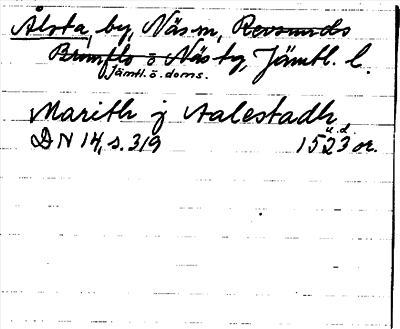 Ålsta, by, Näs sn, Revsunds
Brunflo o Näs tg, Jämtl. l.
Jämtl. ö. doms.
Marith j Aalestadh
DN 14, s. 319 1523 or.
u.d.